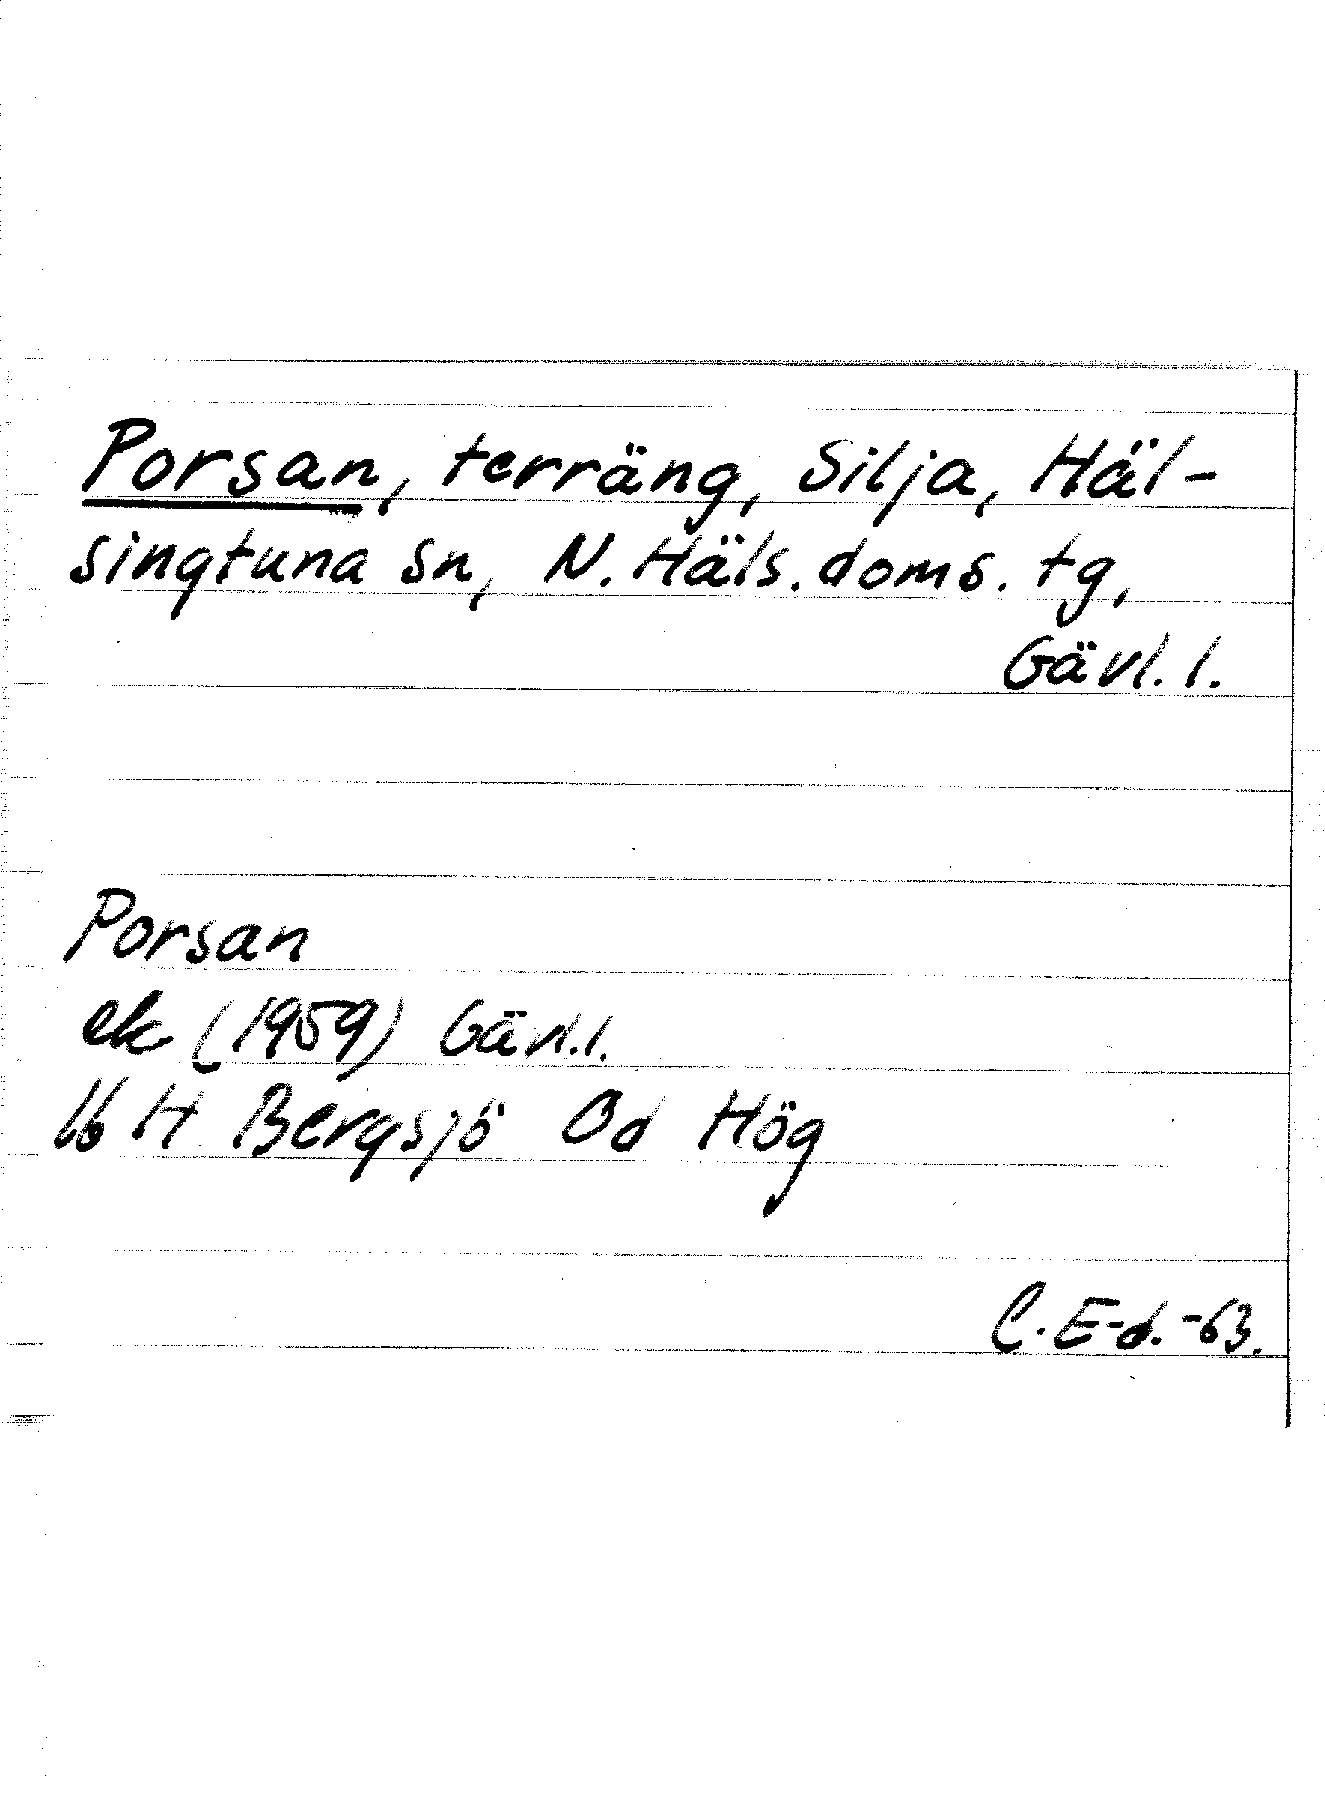 Porsan, terräng, Silja, Häl-
singtuna sn, N. Häls. doms. tg,
Gävl. l.
Porsan
ek (1959) Gävl. l.
16 H Bergsjö Od Hög
C. E-d. -63.